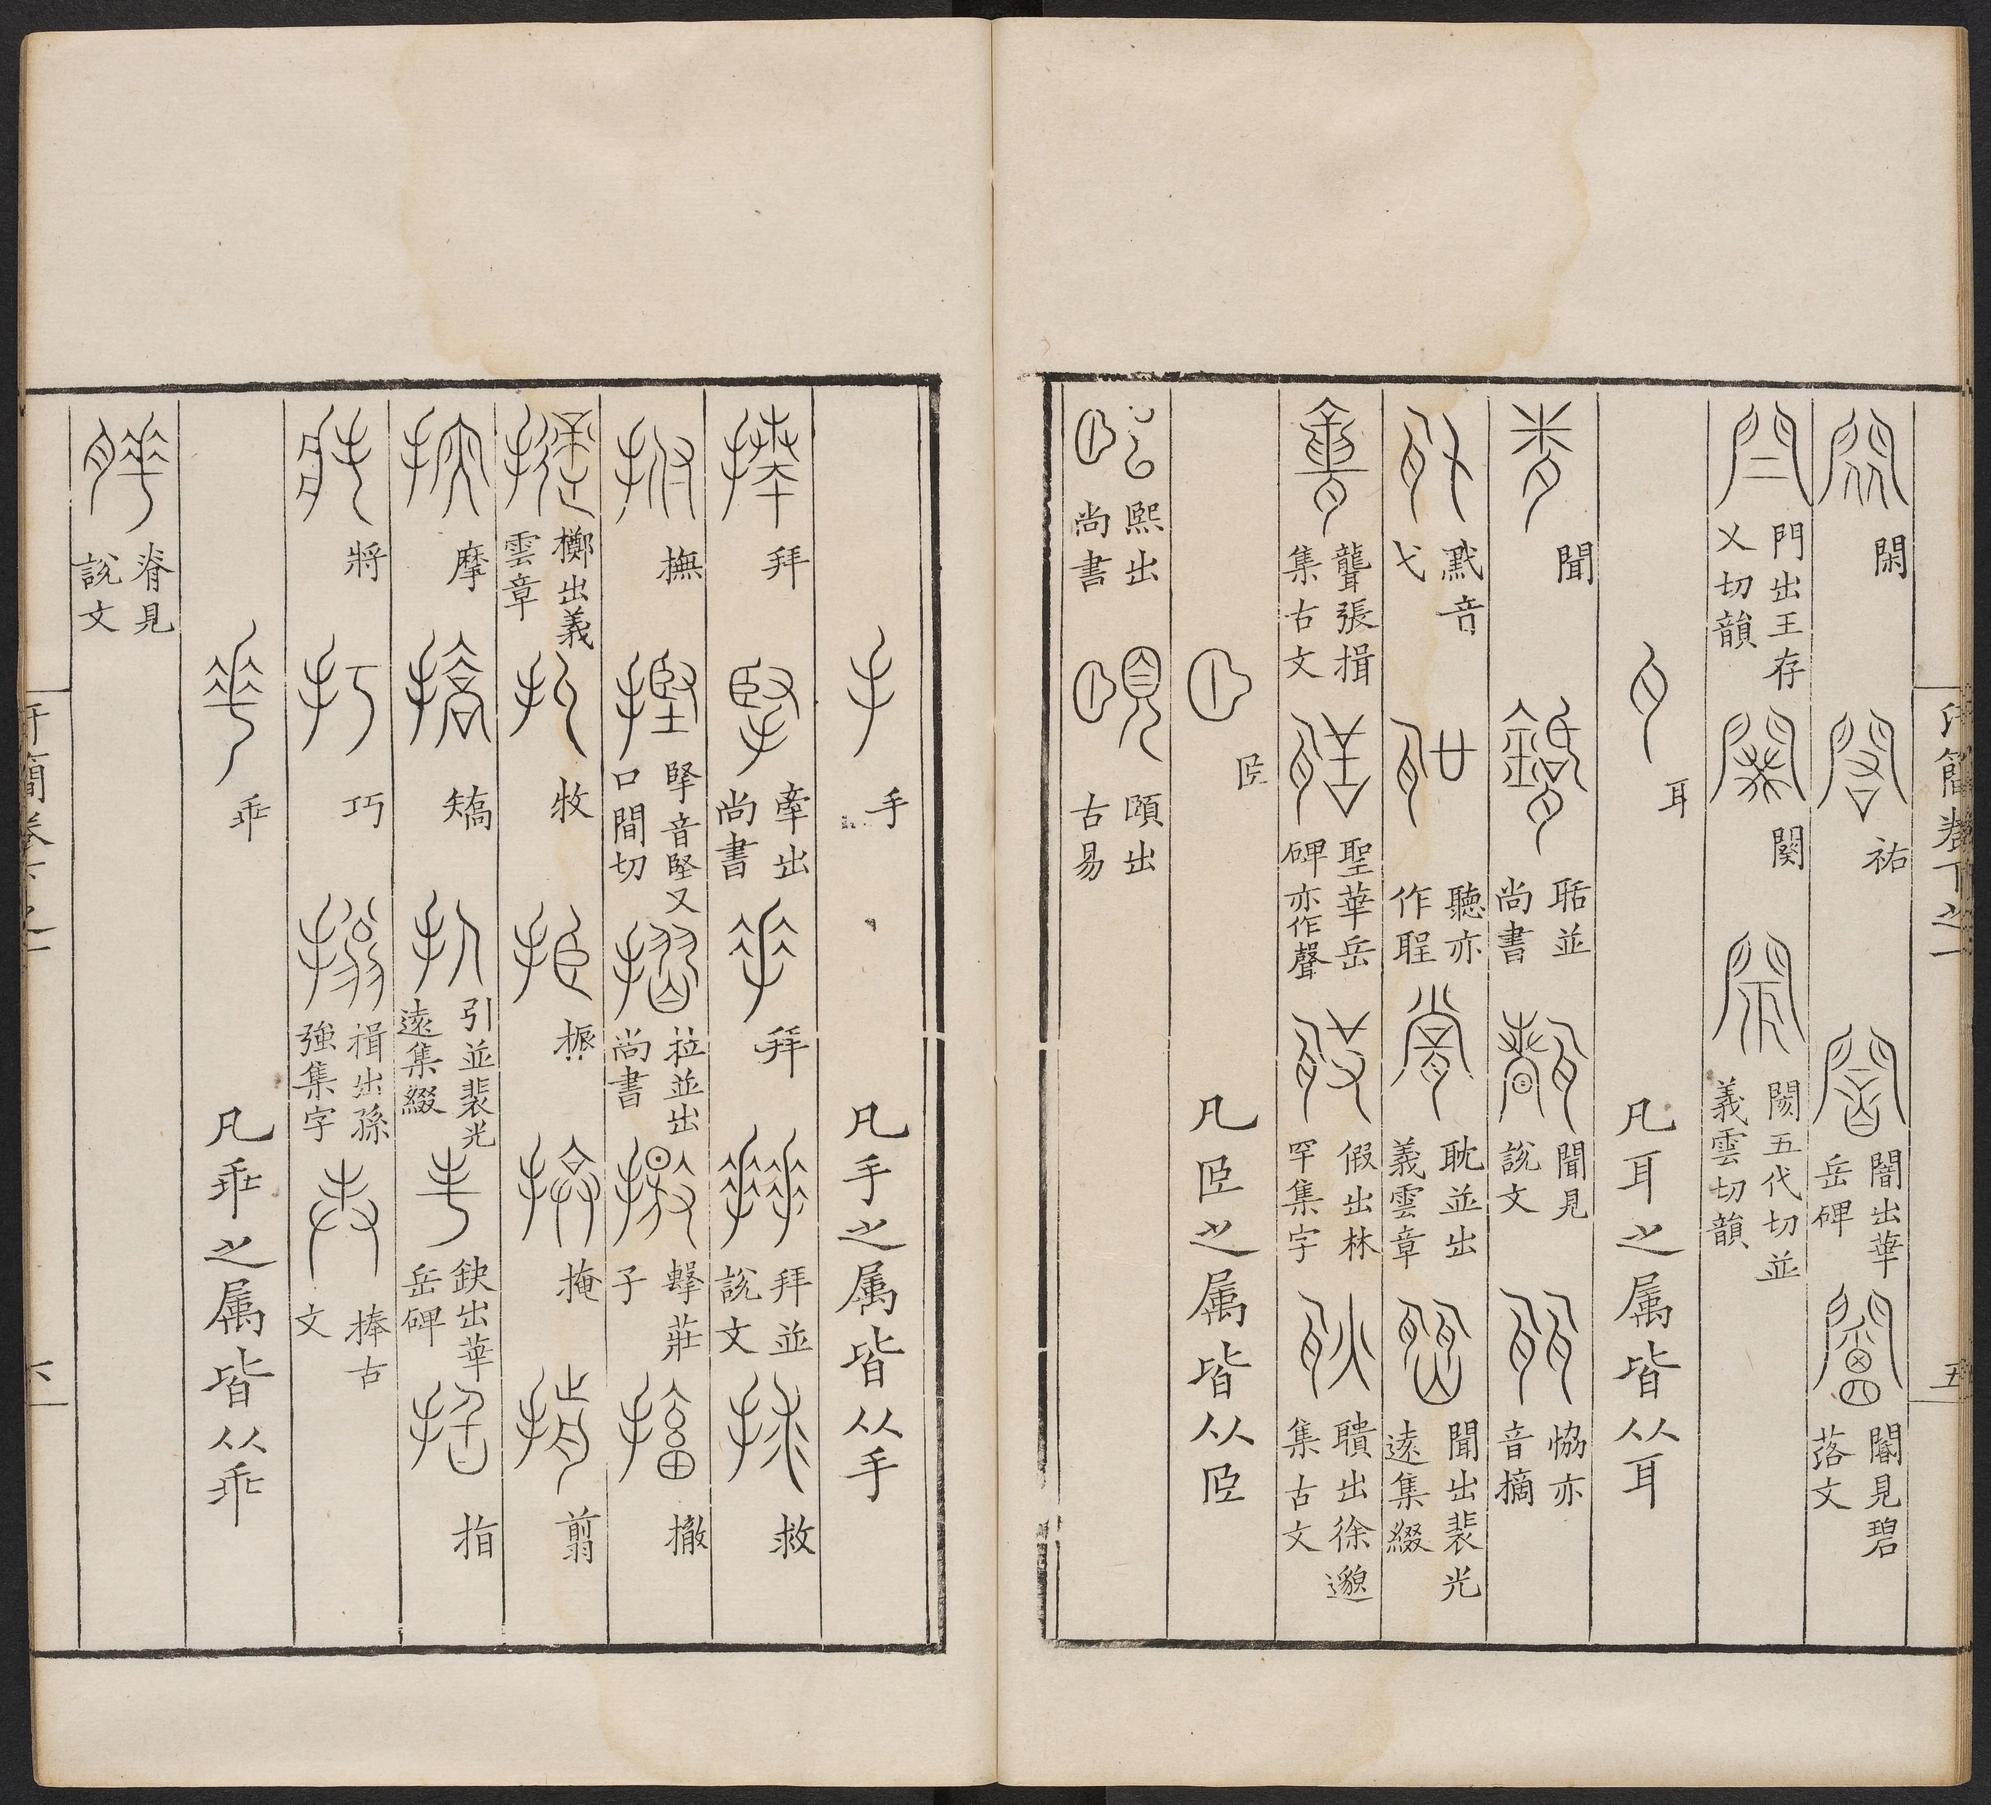 汗簡卷下之一
五
閑 祐 闇出華岳碑 闇見碧落文
門出王存乂切韻 闋 閡五代切並義雲切韻
耳 凡耳之属皆从耳
聞 聒並尚書 聞見說文 恊亦音摘
黓音弋 聽亦作聖 耽並出義雲章 聞出裴光遠集綴
聾張揖集古文 聖華岳碑亦作聲 假出林罕集字 聵出徐邈集古文
𦣞 凡𦣞之属皆从𦣞
熙出尚書 頤出古易
手 凡手之属皆从手
拜 牽出尚書 拜 拜並說文 救
撫 掔音堅又口間切 拉並出尚書 擊莊子 撤
擲出義雲章 扙 振 掩 翦
摩 矯 引並裴光遠集綴 缺出華岳碑 指
將 巧 揖出孫強集字 捧古文
𠂹 凡𠂹之属皆从𠂹
脊見說文
汗簡卷下之一
六